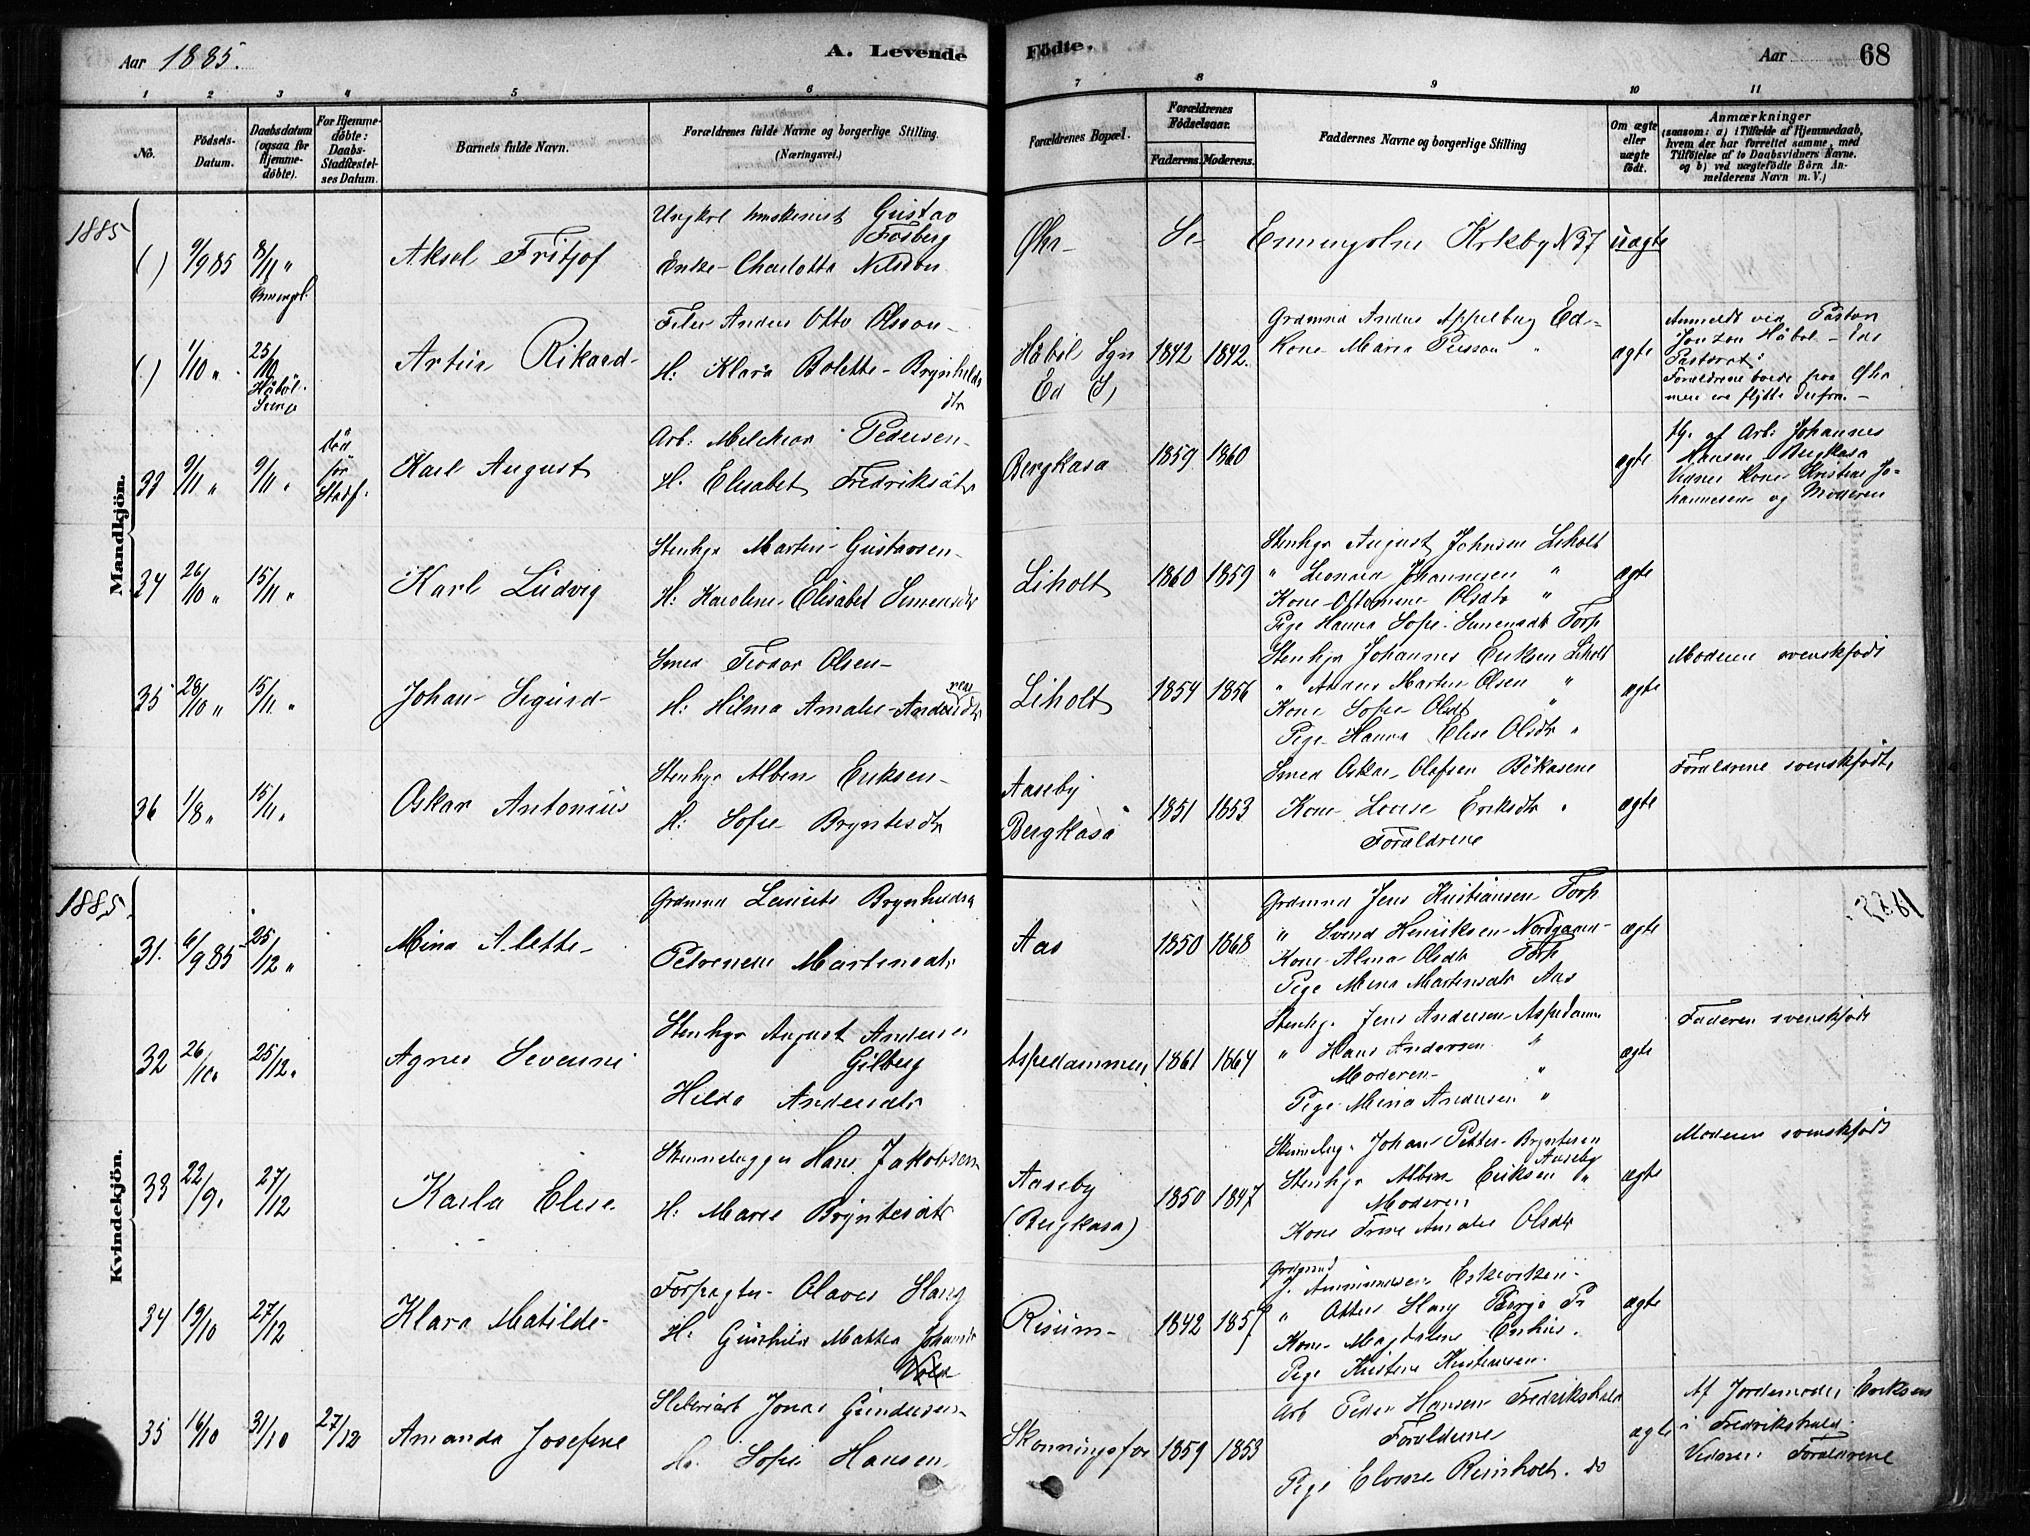 Aar 1885.
A. Levende
Födte.
Aar
68
1 2 3 4 5 6 7 8 9 10 11
No.
Födsels-
Datum.
Daabsdatum
(ogsaa for
Hjemme-
döbte).
For Hjemme-
döbte:
Daabs-
Stadfæstel-
ses Datum.
Barnets fulde Navn.
Forældrenes fulde Navne og borgerlige Stilling.
(Næringsvei.)
Forældrenes Bopæl.
Forældrenes
Födselsaar.
Faderens. Moderens.
Faddernes Navne og borgerlige Stilling
Om ægte
eller
uægte
födt.
Anmærkninger
(saasom: a) i Tilfælde af Hjemmedaab,
hvem der har forrettet samme, med
Tilföielse af to Daabsvidners Navne.
og b) ved uægtefödte Börn An-
melderens Navn m. V.)
Mandkjön.
1885
( ) 9/9 85 8/11 "
Aksel Fritjof
Ungkrl Gustav
Fosberg
Enke Charlotta Nilsdon
Öhr Enningdalens Kirkeby N 37 uægte
( ) 1/10 " 25/10
Håböl
Artur Rikard
Anders Otto Olsson
H: Klara Bolette Brynhilds
dtr
Håböl Sgn
Ed
1842 1842.
Grdmnd Anders Appelbug Ed
Kone Maria Persson "
ægte
Anmeldt ved Pastor
Jonzon Håbol Eds
Pastorat:
Forældrene boede paa Öhr
men ere flytte derfra.
33 9/11 " 9/11 "
död
för
Stadf.
Karl August
Arb: Melchior Pedersen
H. Elisabet Fredriksdtr
Bergkasa
1859 1860
ægte
Hj. af Arb: Johannes
Hansen Bergkasa
Vidner Kone Kristine Jo-
hannesen og Moderen
34 26/10 " 15/11 "
Karl Ludvig
Stenhgr Martin Gustavsen
H: Karoline Elisabet Simensdtr
Liholt
1860 1859
Stenhgr August Johnsen Liholt
" Leonard Johannesen "
Kone Ottomine Olsdtr "
Pige Hanna Sofie Simensdtr Torp
ægte
35 28/10 " 15/11 "
Johan Sigurd
Smed Teodor Olsen
H: Hilma Amalie Andersdtr
Liholt
1854 1856
Stenhgr Johannes Eriksen Liholt
" Anders Martin Olsen "
Kone Sofie Olsdtr "
Pige Hanna Elise Olsdtr "
ægte
Moderen svenskfödt
36 1/8 " 15/11 "
Oskar Antonius
Stenhgr Albin Eriksen
H: Sofie Bryntesdtr
Aaseby
Bergkasa
1851 1853
Smed Oskar Olafsen Bökasene
Kone Lovise Eriksdtr "
Forældrene
ægte
Forældrene svenskfödte
Kvindekjön.
1885.
31. 6/9 85 25/12 "
Mina Alette
Grdmnd Laurits Brynhildsen
Petrenem Martinsdtr
Aas
1850 1868
Grdmnd Jens Kristiansen Torp
" Svend Henriksen Nordgaard
Kone Alma Olsdtr Torp
Pige Mina Martinsdtr Aas
ægte
32 26/10 " 25/12 "
Agnes Severine
Stenhgr August Andersen
Gilberg
Hilda Andersdtr
Aspedammen
1861 1864
Stenhg. Jens Andersen Aspedamm
" Hans Andersen "
Moderen "
Pige Mina Andersen "
ægte
Faderen svenskfödt
33 22/9 " 27/12
Karla Elise
Stenhugger Hans Jakobsen
H: Marie Bryntesdtr
Aaseby
(Bergkasa)
1850 1847
Johan Petter Bryntesen
Aaseby
Stenhgr Albin Eriksen "
Moderen
Kone Trine Amalie Olsdtr
ægte
Moderen svenskfödt
34 19/10 27/12
Klara Matilde
Forpagter Olaves Hang
H: Gunhild Mattea Johansdtr
Risum
1842 1857
Grdmnd
J. Ammundsen Eskeviken
" Otter Hang Berge
Kone Magdalene
Pige Kirstine Kristensen.
ægte
35 16/10 31/10 27/12
Amanda Josefine
Sliberiarb Jonas Gundersen
H. Sofie Hansen
Skonningsfos
1859 1853
Arb Peder Hansen Fredrikshald
Forældrene
Pige Elvine Reinholt. do
ægte
Af Jordemoder Eriksen
i Fredrikshald
Vidner: Forældrene